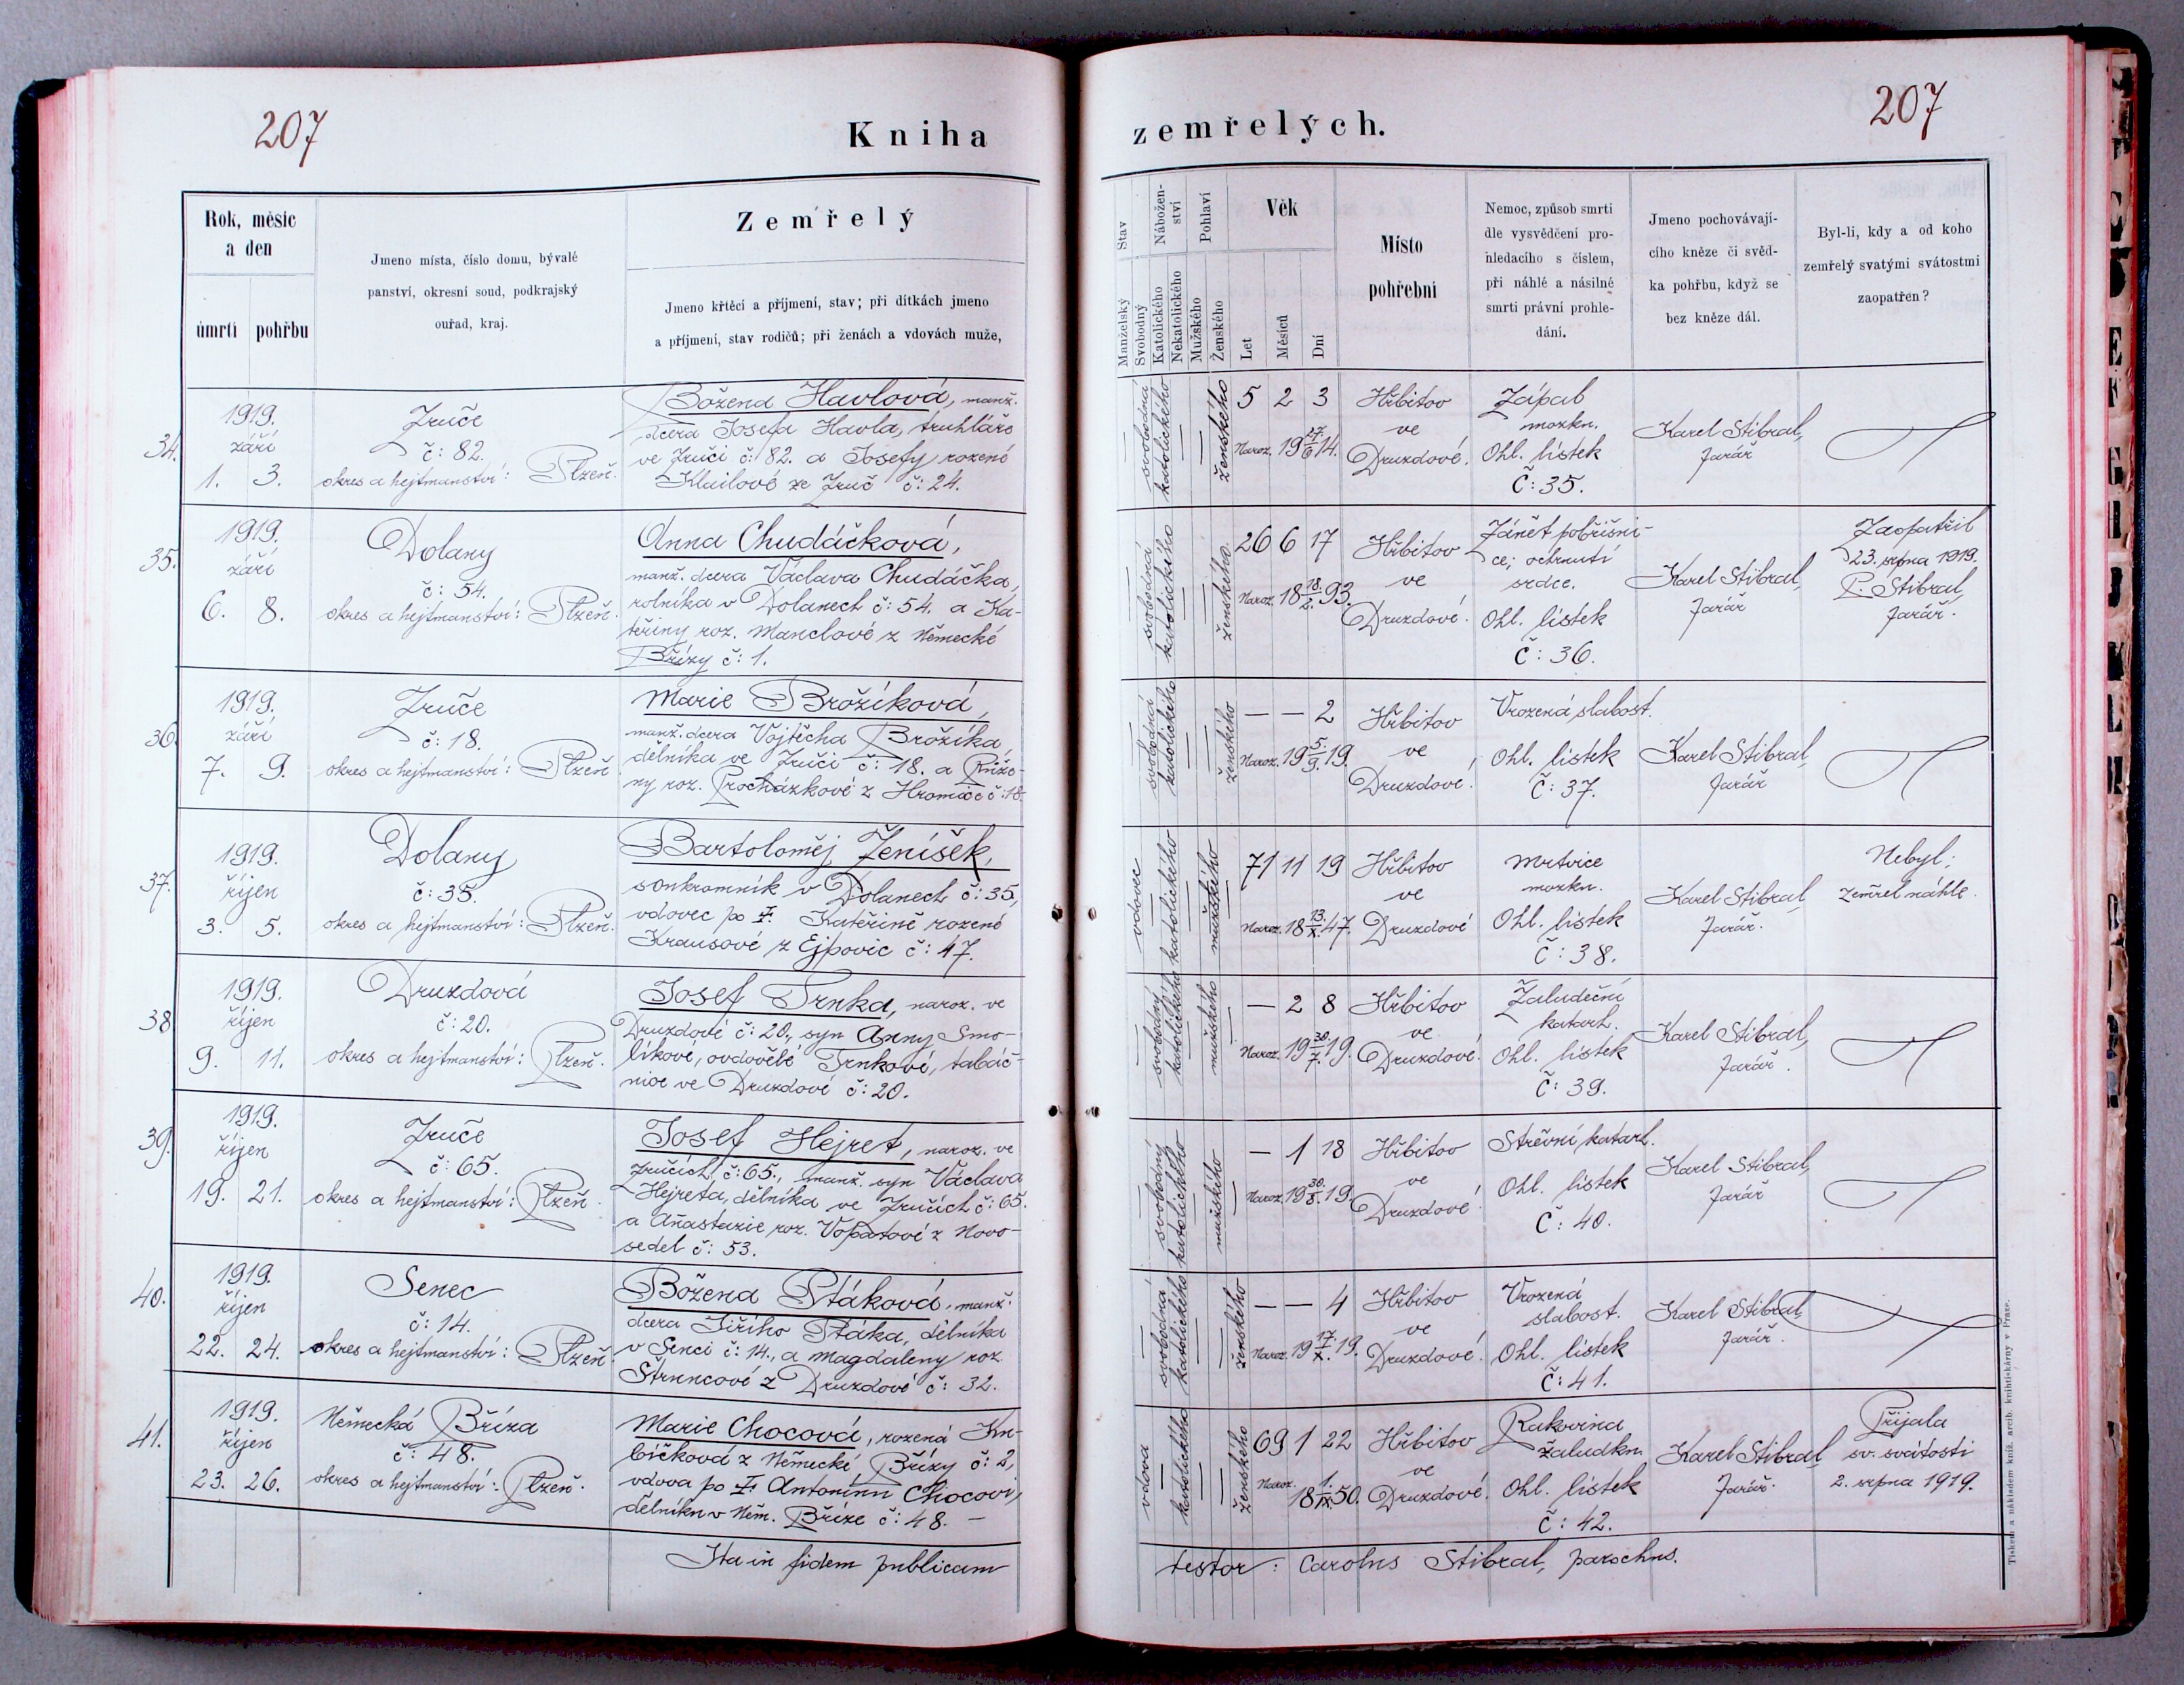 207
Kniha
zemřelých.
207
Rok, měsíc
a den
úmrtí
pohřbu
Jmeno místa, číslo domu, bývalé
panství, okresní soud, podkrajský
ouřad, kraj.
Zemřelý
Jmeno křtěcí a příjmení, stav; při dítkách jmeno
a příjmení, stav rodičů; při ženách a vdovách muže,
Stav
Manželský
Svobodný
Nábožen-
ství
Katolického
Nekatolického
Pohlaví
Mužského
Ženského
Věk
Let
Měsíců
Dní
Místo
pohřební
Nemoc, způsob smrti
dle vysvědčení pro-
hledacího s číslem,
při náhlé a násilné
smrti právní prohle-
dání.
Jmeno pochovávají-
cího kněze či svěd-
ka pohřbu, když se
bez kněze dál.
Byl-li, kdy a od koho
zemřelý svatými svátostmi
zaopatřen?
34.
1919.
září
1. 3.
Zruče
č: 82.
okres a hejtmanství: Plzeň.
Božena Havlová, manž.
dcera Josefa Havla, truhláře
ve Zruči č: 82. a Josefy rozené
Kluilové ze Zruč č: 24.
svobodná
katolického
ženského
5 2 3
Naroz. 19 27./6 14.
Hřbitov
ve
Druzdové.
Zápal
mozku.
Ohl. lístek
Č: 35.
Karel Stibral,
farář
35.
1919.
září
6. 8.
Dolany
č: 54.
okres a hejtmanství: Plzeň.
Anna Chudáčková,
manž. dcera Václava Chudáčka,
rolníka v Dolanech č: 54. a Ka-
teřiny roz. Manclové z Německé
Břízy č: 1.
svobodná
katolického
ženského
26 6 17
Naroz. 18 18./2. 93.
Hřbitov
ve
Druzdové.
Zánět pobřišni-
ce; ochrnutí
srdce.
Ohl. lístek
Č: 36.
Karel Stibral,
farář
Zaopatřil
23. srpna 1919.
P. Stibral,
farář.
36.
1919.
září
7. 9.
Zruče
č: 18.
okres a hejtmanství: Plzeň
Marie Brožíková,
manž. dcera Vojtěcha Brožíka,
dělníka ve Zruči č: 18. a Růže-
ny roz. Procházkové z Hromice č: 18.
svobodná
katolického
ženského
— — 2
Naroz. 19 5./9. 19.
Hřbitov
ve
Druzdové.
Vrozená slabost.
Ohl. lístek
Č: 37.
Karel Stibral,
farář
37.
1919.
říjen
3. 5.
Dolany
č: 35.
okres a hejtmanství: Plzeň.
Bartoloměj Ženíšek,
soukromník v Dolanech č: 35,
vdovec po Ɨ Kateřině rozené
Krausové z Ejpovic č: 47.
vdovec
katolického
mužského
71 11 19
Naroz. 18 13./X. 47.
Hřbitov
ve
Druzdové
Mrtvice
mozku.
Ohl. lístek
Č: 38.
Karel Stibral,
farář.
Nebyl;
zemřel náhle.
38
1919.
říjen
9. 11.
Druzdová
č: 20.
okres a hejtmanství: Plzeň.
Josef Trnka, naroz. ve
Druzdové č: 20., syn Anny Smo-
líkové, ovdovělé Trnkové, tabáč-
nice ve Druzdové č: 20.
svobodný
katolického
mužského
— 2 8
Naroz. 19 30./7. 19.
Hřbitov
ve
Druzdové.
Žaludeční
katarh.
Ohl. lístek
Č: 39.
Karel Stibral,
farář.
39.
1919.
říjen
19. 21.
Zruče
č: 65.
okres a hejtmanství: Plzeň.
Josef Hejret, naroz. ve
Zručích č: 65., manž. syn Václava
Hejreta, dělníka ve Zručích č: 65.
a Anastazie roz. Vopatové z Novo-
sedel č: 53.
svobodný
katolického
mužského
— 1 18
Naroz. 19 30./8. 19.
Hřbitov
ve
Druzdové
Střevní katarh.
Ohl. lístek
Č: 40.
Karel Stibral,
farář
40.
1919.
říjen
22. 24.
Senec
č: 14.
okres a hejtmanství: Plzeň
Božena Ptáková, manž.
dcera Jiřího Ptáka, dělníka
v Senci č: 14., a Magdaleny roz.
Štruncové z Druzdové č: 32.
svobodná
katolického
ženského
— — 4
Naroz. 19 17./X. 19.
Hřbitov
ve
Druzdové.
Vrozená
slabost.
Ohl. lístek
Č: 41.
Karel Stibral,
farář.
41.
1919.
říjen
23. 26.
Německá Bříza
č: 48.
okres a hejtmanství: Plzeň.
Marie Chocová, rozená Ku-
bíčková z Německé Břízy č: 2,
vdova po Ɨ Antonínu Chocovi,
dělníku v Něm. Bříze č: 48. —
vdova
katolického
ženského
69 1 22
Naroz. 18 1./IX. 50.
Hřbitov
ve
Druzdové.
Rakovina
žaludku.
Ohl. lístek
Č: 42.
Karel Stibral,
farář.
Přijala
sv. svátosti
2. srpna 1919.
Ita in fidem publicam
testor: Carolus Stibral, parochus.
Tiskem a nákladem kníž. arcib. knihtiskárny v Praze.